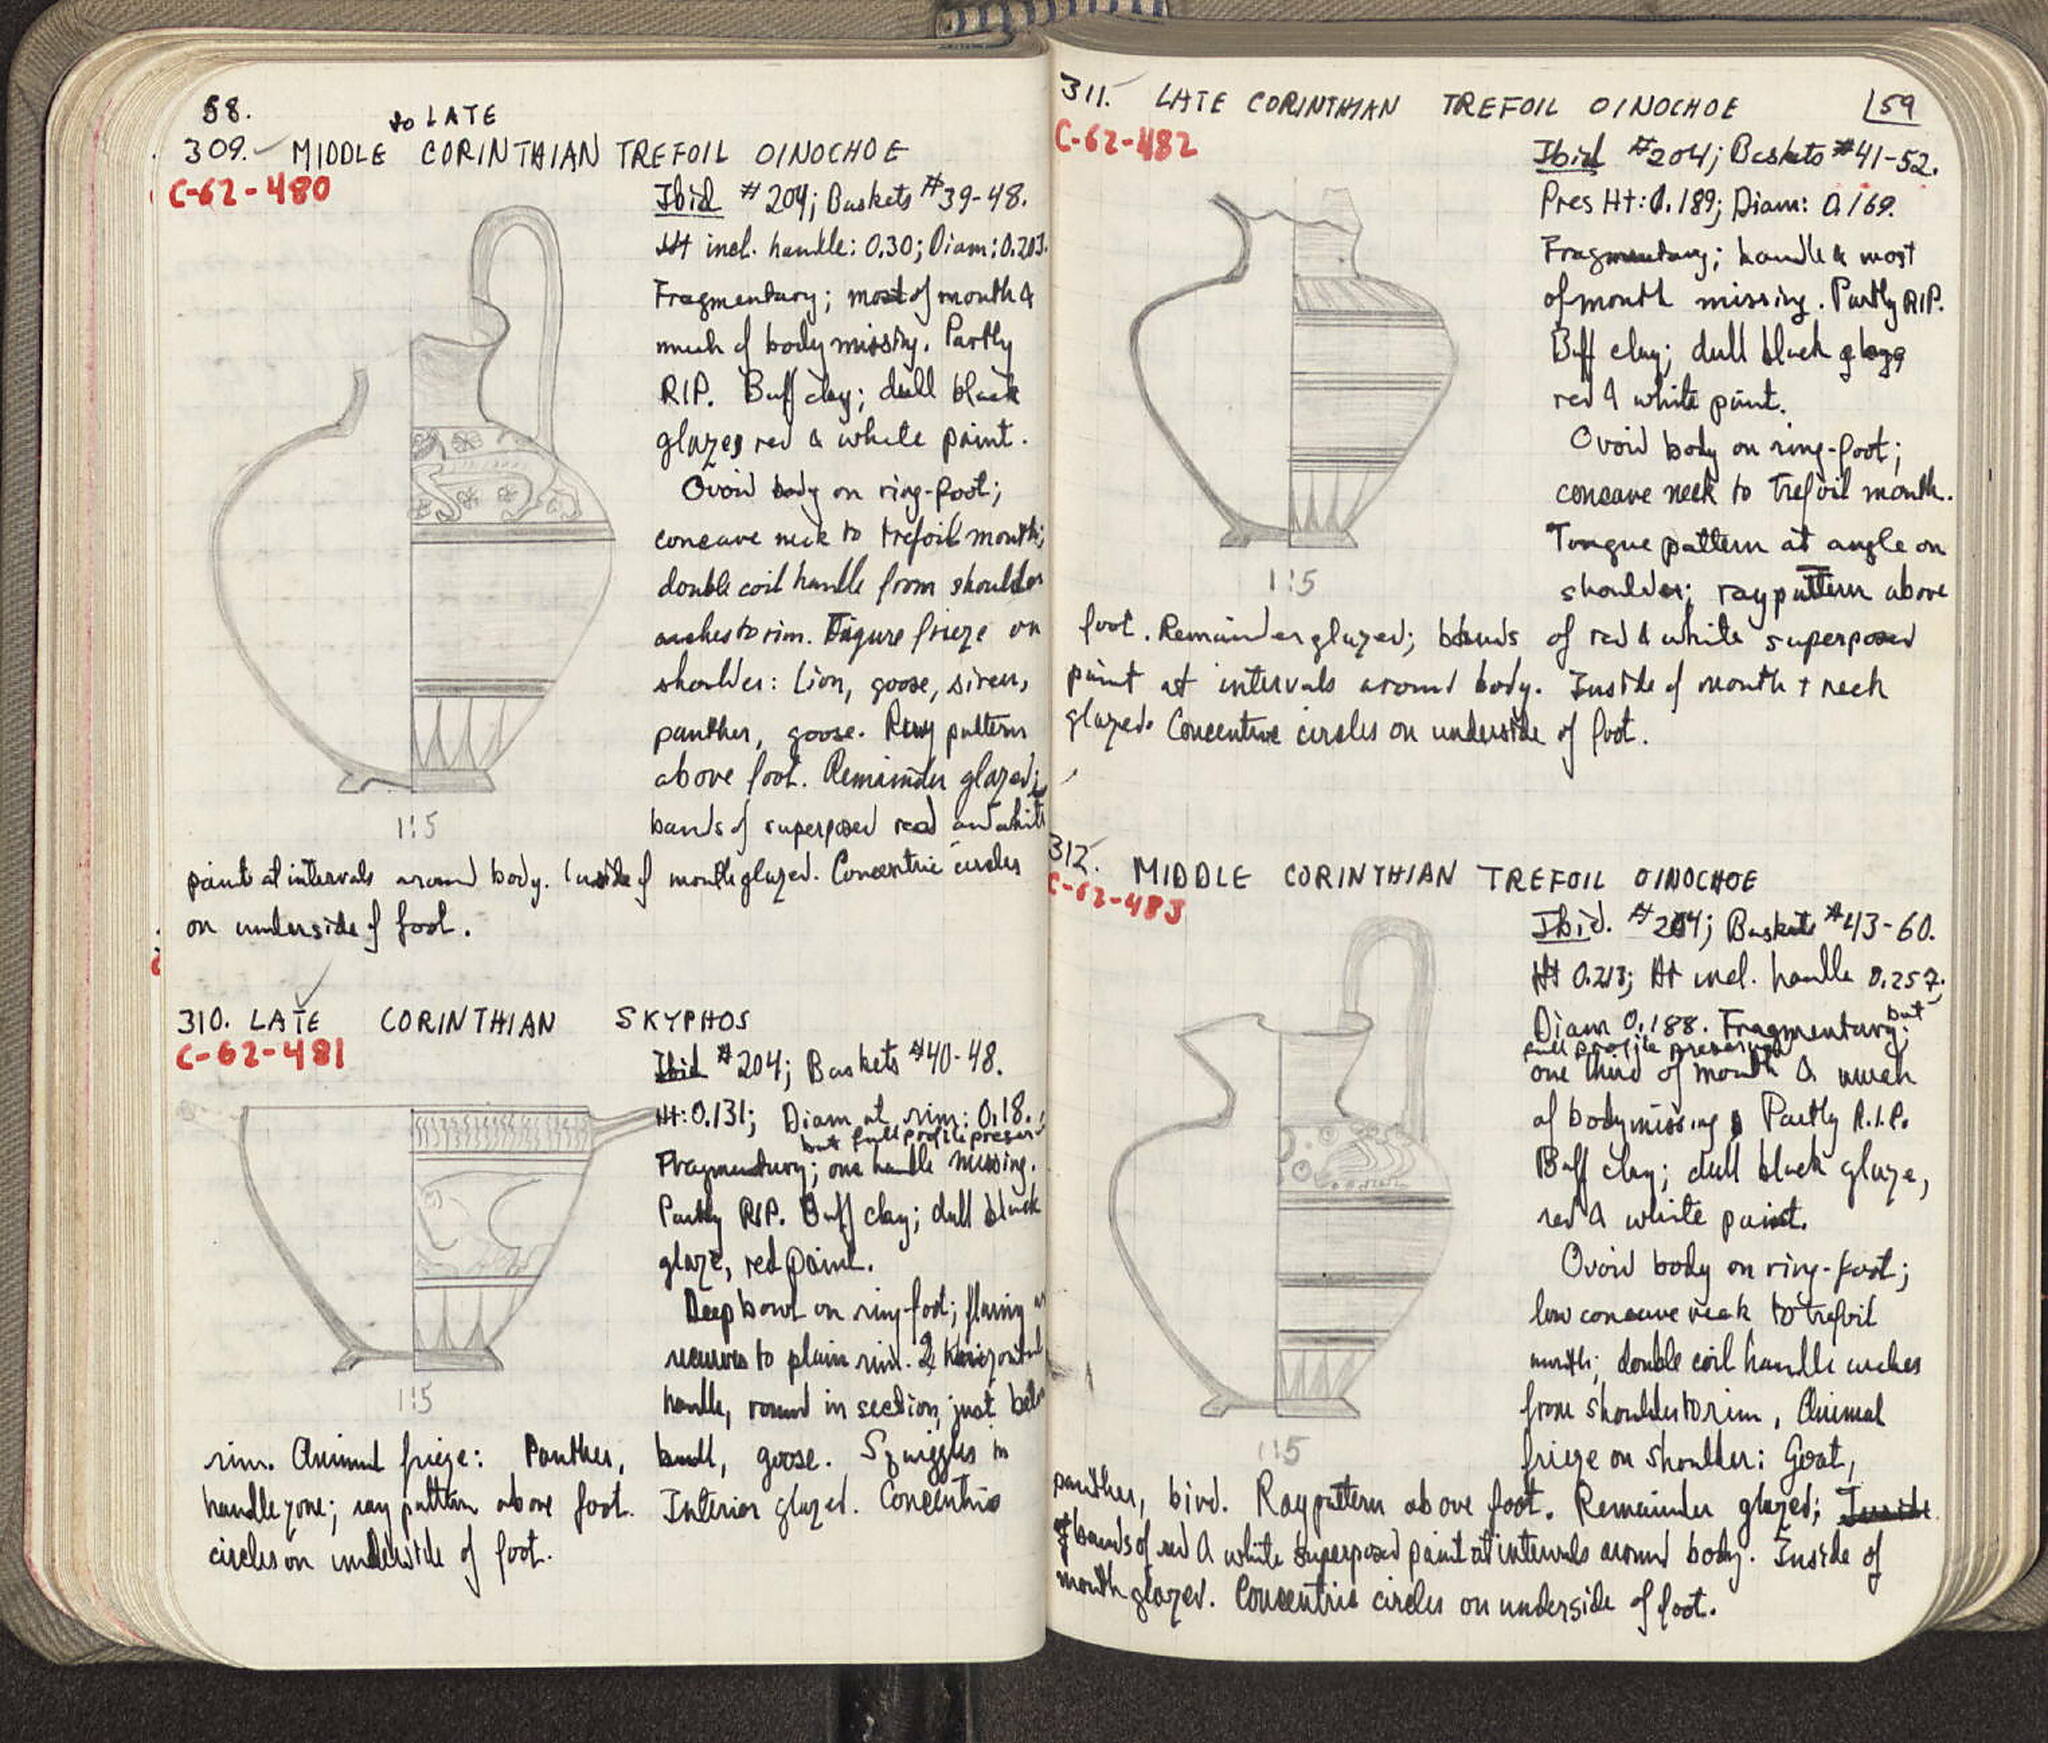 58.
to LATE
309. MIDDLE CORINTHIAN TREFOIL OINOCHOE
C-62-480
Ibid #204; Baskets #39-48.
Ht incl. handle: 0.30; Diam: 0.203.
Fragmentary; most of mouth &
much of body missing. Partly
RIP. Buff clay; dull black
glaze, red & white paint.
Ovoid body on ring-foot;
concave neck to trefoil mouth;
double coil handle from shoulder
arches to rim. Figure frieze on
shoulder: Lion, goose, siren,
panther, goose. Ray pattern
above foot. Remainder glazed;
bands of superposed red and white
1:5
paint at intervals around body. Inside of mouth glazed. Concentric circles
on underside of foot.
310. LATE CORINTHIAN SKYPHOS
C-62-481
Ibid #204; Baskets #40-48.
Ht: 0.131; Diam at rim: 0.18.
but full profile preser
Fragmentary; one handle missing.
Partly RIP. Buff clay; dull black
glaze, red paint.
Deep bowl on ring-foot; flaring
recurves to plain rim. 2 Horizontal
handle, round in section, just below
1:5
rim. Animal frieze: Panther, bull, goose. Squiggles in
handle zone; ray pattern above foot. Interior glazed. Concentric
circles on underside of foot.
59
311. LATE CORINTHIAN TREFOIL OINOCHOE
C-62-482
Ibid #204; Baskets #41-52.
Pres Ht: 0.189; Diam: 0.169.
Fragmentary; handle & most
of mouth missing. Partly RIP.
Buff clay; dull black glaze
red & white paint.
Ovoid body on ring-foot;
concave neck to trefoil mouth.
Tongue pattern at angle on
shoulder; ray pattern above
1:5
foot. Remainder glazed; bands of red & white superposed
paint at intervals around body. Inside of mouth + neck
glazed. Concentric circles on underside of foot.
312. MIDDLE CORINTHIAN TREFOIL OINOCHOE
C-62-483
Ibid. #204; Baskets #43-60.
Ht 0.213; Ht incl. handle 0.257;
Diam 0.188. Fragmentary; but
full profile preserved
one third of mouth & much
of body missing. Partly R.I.P.
Buff clay; dull black glaze,
red & white paint.
Ovoid body on ring-foot;
low concave neck to trefoil
mouth; double coil handle arches
from shoulder to rim, Animal
frieze on shoulder: Goat,
1:5
panther, bird. Ray pattern above foot. Remainder glazed; Inside
of bands of red & white superposed paint at intervals around body. Inside of
mouth glazed. Concentric circles on underside of foot.